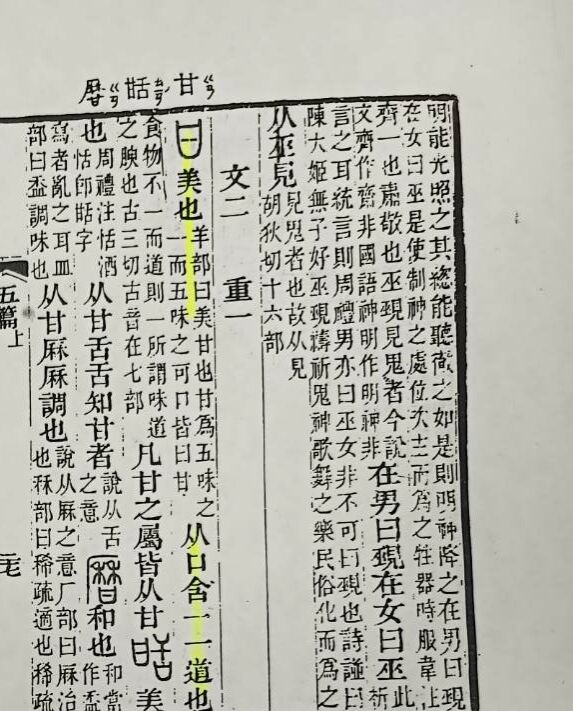 甘 ㄍㄢ
𤯌 ㄊㄧㄢ
曆 ㄍㄢ
明能光照之其聰能聽徹之如是則明神降之在男曰覡
在女曰巫是使制神之處位次主而爲之牲器時服韋注
齊一也肅敬也巫覡見鬼者今說在男曰覡在女曰巫此
文齊作齋非國語神明作明神非
言之耳統言則周禮男亦曰巫女非不可曰覡也詩譜曰
陳大姬無子好巫覡禱祈鬼神歌舞之樂民俗化而爲之
从巫見見鬼者也故从見
胡狄切十六部
文二 重一
甘美也羊部曰美甘也甘爲五味之
一而五味之可口皆曰甘从口含一一道也
食物不一而道則一所謂味道
之腴也古三切古音在七部凡甘之屬皆从甘
美
也周禮注恬酒
恬卽甛字从甘舌舌知甘者說从舌
之意
和也和當
作盉
寫者亂之耳皿
部曰盉調味也从甘厤厤調也說从厤之意厂部曰厤治
也秝部曰稀疏適也稀疏
五篇上